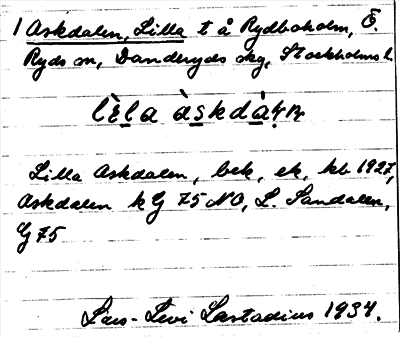 1 Askdalen, Lilla t å Rydboholm, Ö.
Ryds sn, Danderyds skg, Stockholms l.
lè̱la àskdàḷṇ
Lilla Askdalen, bek, ek, kb 1927,
Askdalen k G 75 NO, L. Sandalen,
G 75
Lars-Levi Læstadius 1934.